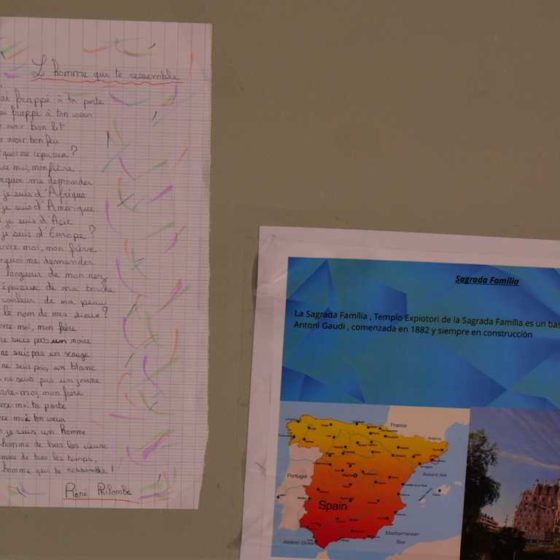 L'homme qui te ressemble
ai frappé à ta porte
ai frappé à ton cœur
avoir bon lit
avoir bon feu
me repousser ?
moi, mon frère
me demander
je suis d'Afrique
je suis d'Amérique
je suis d'Asie
je suis d'Europe ?
moi, mon frère
quoi me demander
longueur de mon nez
épaisseur de ma bouche
couleur de ma peau
le nom de mes dieux ?
moi, mon frère
ne suis pas un noir
ne suis pas un rouge
ne suis pas un blanc
ne suis pas un jaune
moi, mon frère
moi ta porte
moi ton cœur
je suis un homme
homme de tous les cieux
de tous les temps,
homme qui te ressemble !
René Philombe
Sagrada Familia
La Sagrada Familia , Templo Expiotori de la Sagrada Familia.es un bas
Antoni Gaudi , comenzada en 1882 y siempre en construcción
France
Portugal
Spain
Mediterranean
Sea